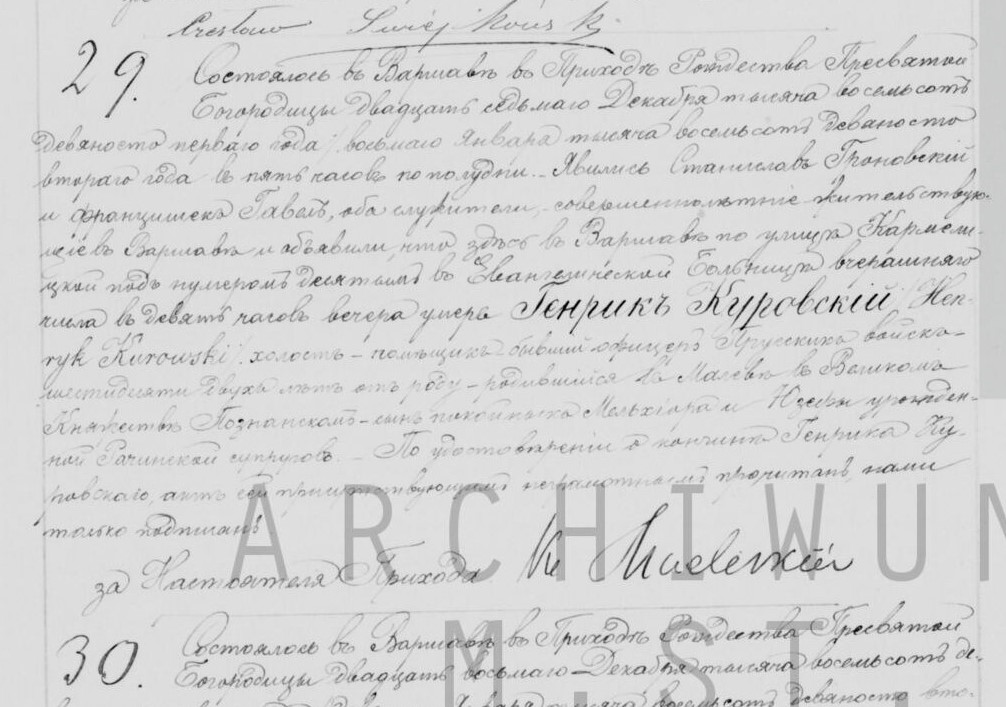 Czesław Świejkowski
29.
Состоялось въ Варшавѣ въ Приходѣ Рождества Пресвятой
Богородицы двадцать седьмаго Декабря тысяча восемьсотъ
девяносто перваго года /: восьмаго Января тысяча восемьсотъ девяносто
втораго года въ пять часовъ по полудни. – Явились Станиславъ Гроновскій
и Францишекъ Гавелъ, оба служители, – совершеннолѣтніе – жительствую-
щіе въ Варшавѣ и объявили, что здѣсь въ Варшавѣ по улицѣ Кармели-
цкой подъ нумеромъ десятымъ въ Евангелической Больницѣ вчерашняго
числа въ девять часовъ вечера умеръ Генрикъ Куровскій /: Hen-
ryk Kurowski /: холостъ – помѣщикъ бывшій офицеръ Прусскихъ войскъ –
шестидесяти двухъ лѣтъ отъ роду – родившійся въ Малевѣ въ Великомъ
Княжествѣ Познанскомъ – сынъ покойныхъ Мельхіора и Юзефы урожден-
ной Рачинской супруговъ. – По удостовѣреніи о кончинѣ Генрика Ку-
ровскаго, актъ сей присутствующимъ неграмотнымъ прочитанъ, нами
только подписанъ
за Настоятеля Прихода
ARCHIWUM
30.
Состоялось въ Варшавѣ въ Приходѣ Рождества Пресвятой
Богородицы двадцать восьмаго Декабря тысяча восемьсотъ де-
M.ST.
Января тысяча восемьсотъ девяносто вто-